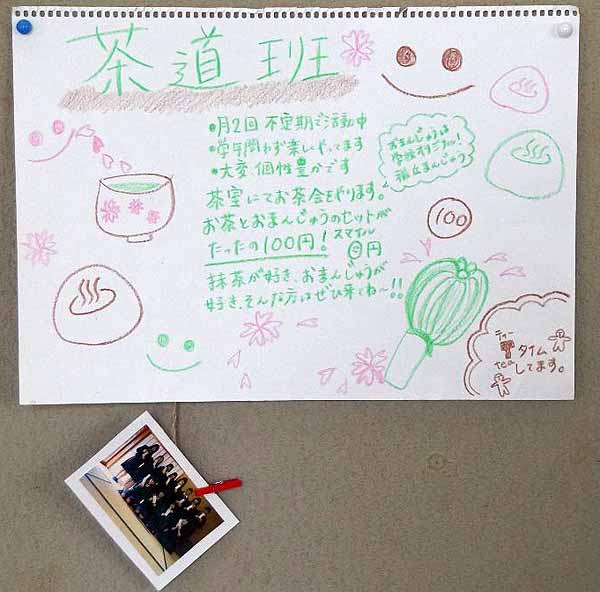 茶道班
●月2回 不定期で活動中
●学年問わず楽しくやってます
●大変、個性豊かです
茶室にてお茶会をやります。
お茶とおまんじゅうのセットが
たったの100円! スマイル
0円
抹茶が好き、おまんじゅうが
好き、そんな方はぜひ来てね〜!!
おまんじゅうは
学校オリジナル!
福丘まんじゅう
100
ティー
tea
タイム
してます。